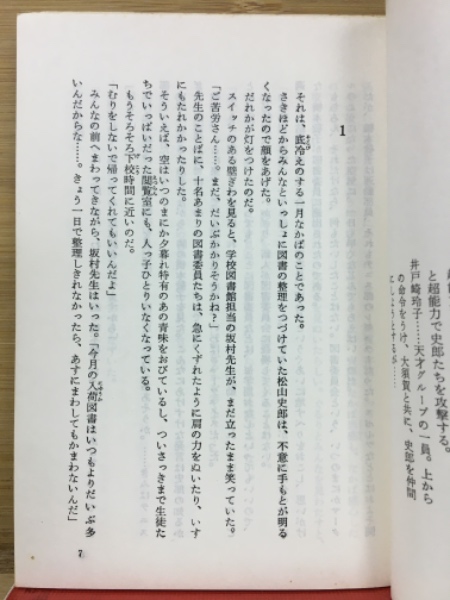 と超能力で史郎たちを攻撃する。
井戸崎玲子……天才グループの一員。上から
の命令をうけ、大須賀と共に、史郎を仲間
1
それは、底冷えのする一月なかばのことであった。
さきほどからみんなといっしょに図書の整理をつづけていた松山史郎は、不意に手もとが明る
くなったので顔をあげた。
だれかが灯をつけたのだ。
スイッチのある壁ぎわを見ると、学校図書館担当の坂村先生が、まだ立ったまま笑っていた。
「ご苦労さん……。まだ、だいぶかかりそうかね?」
先生のことばに、十名あまりの図書委員たちは、急にくずれたように肩の力をぬいたり、いす
にもたれかかったりした。
そういえば、空はいつのまにか夕暮れ特有のあの青味をおびているし、ついさっきまで生徒た
ちでいっぱいだった閲覧室にも、人っ子ひとりいなくなっている。
もうそろそろ下校時間に近いのだ。
「むりをしないで帰ってくれてもいいんだよ」
みんなの前へまわってきながら、坂村先生はいった。「今月の入荷図書はいつもよりだいぶ多
いんだからな……。きょう一日で整理しきれなかったら、あすにまわしてもかまわないんだ」
7